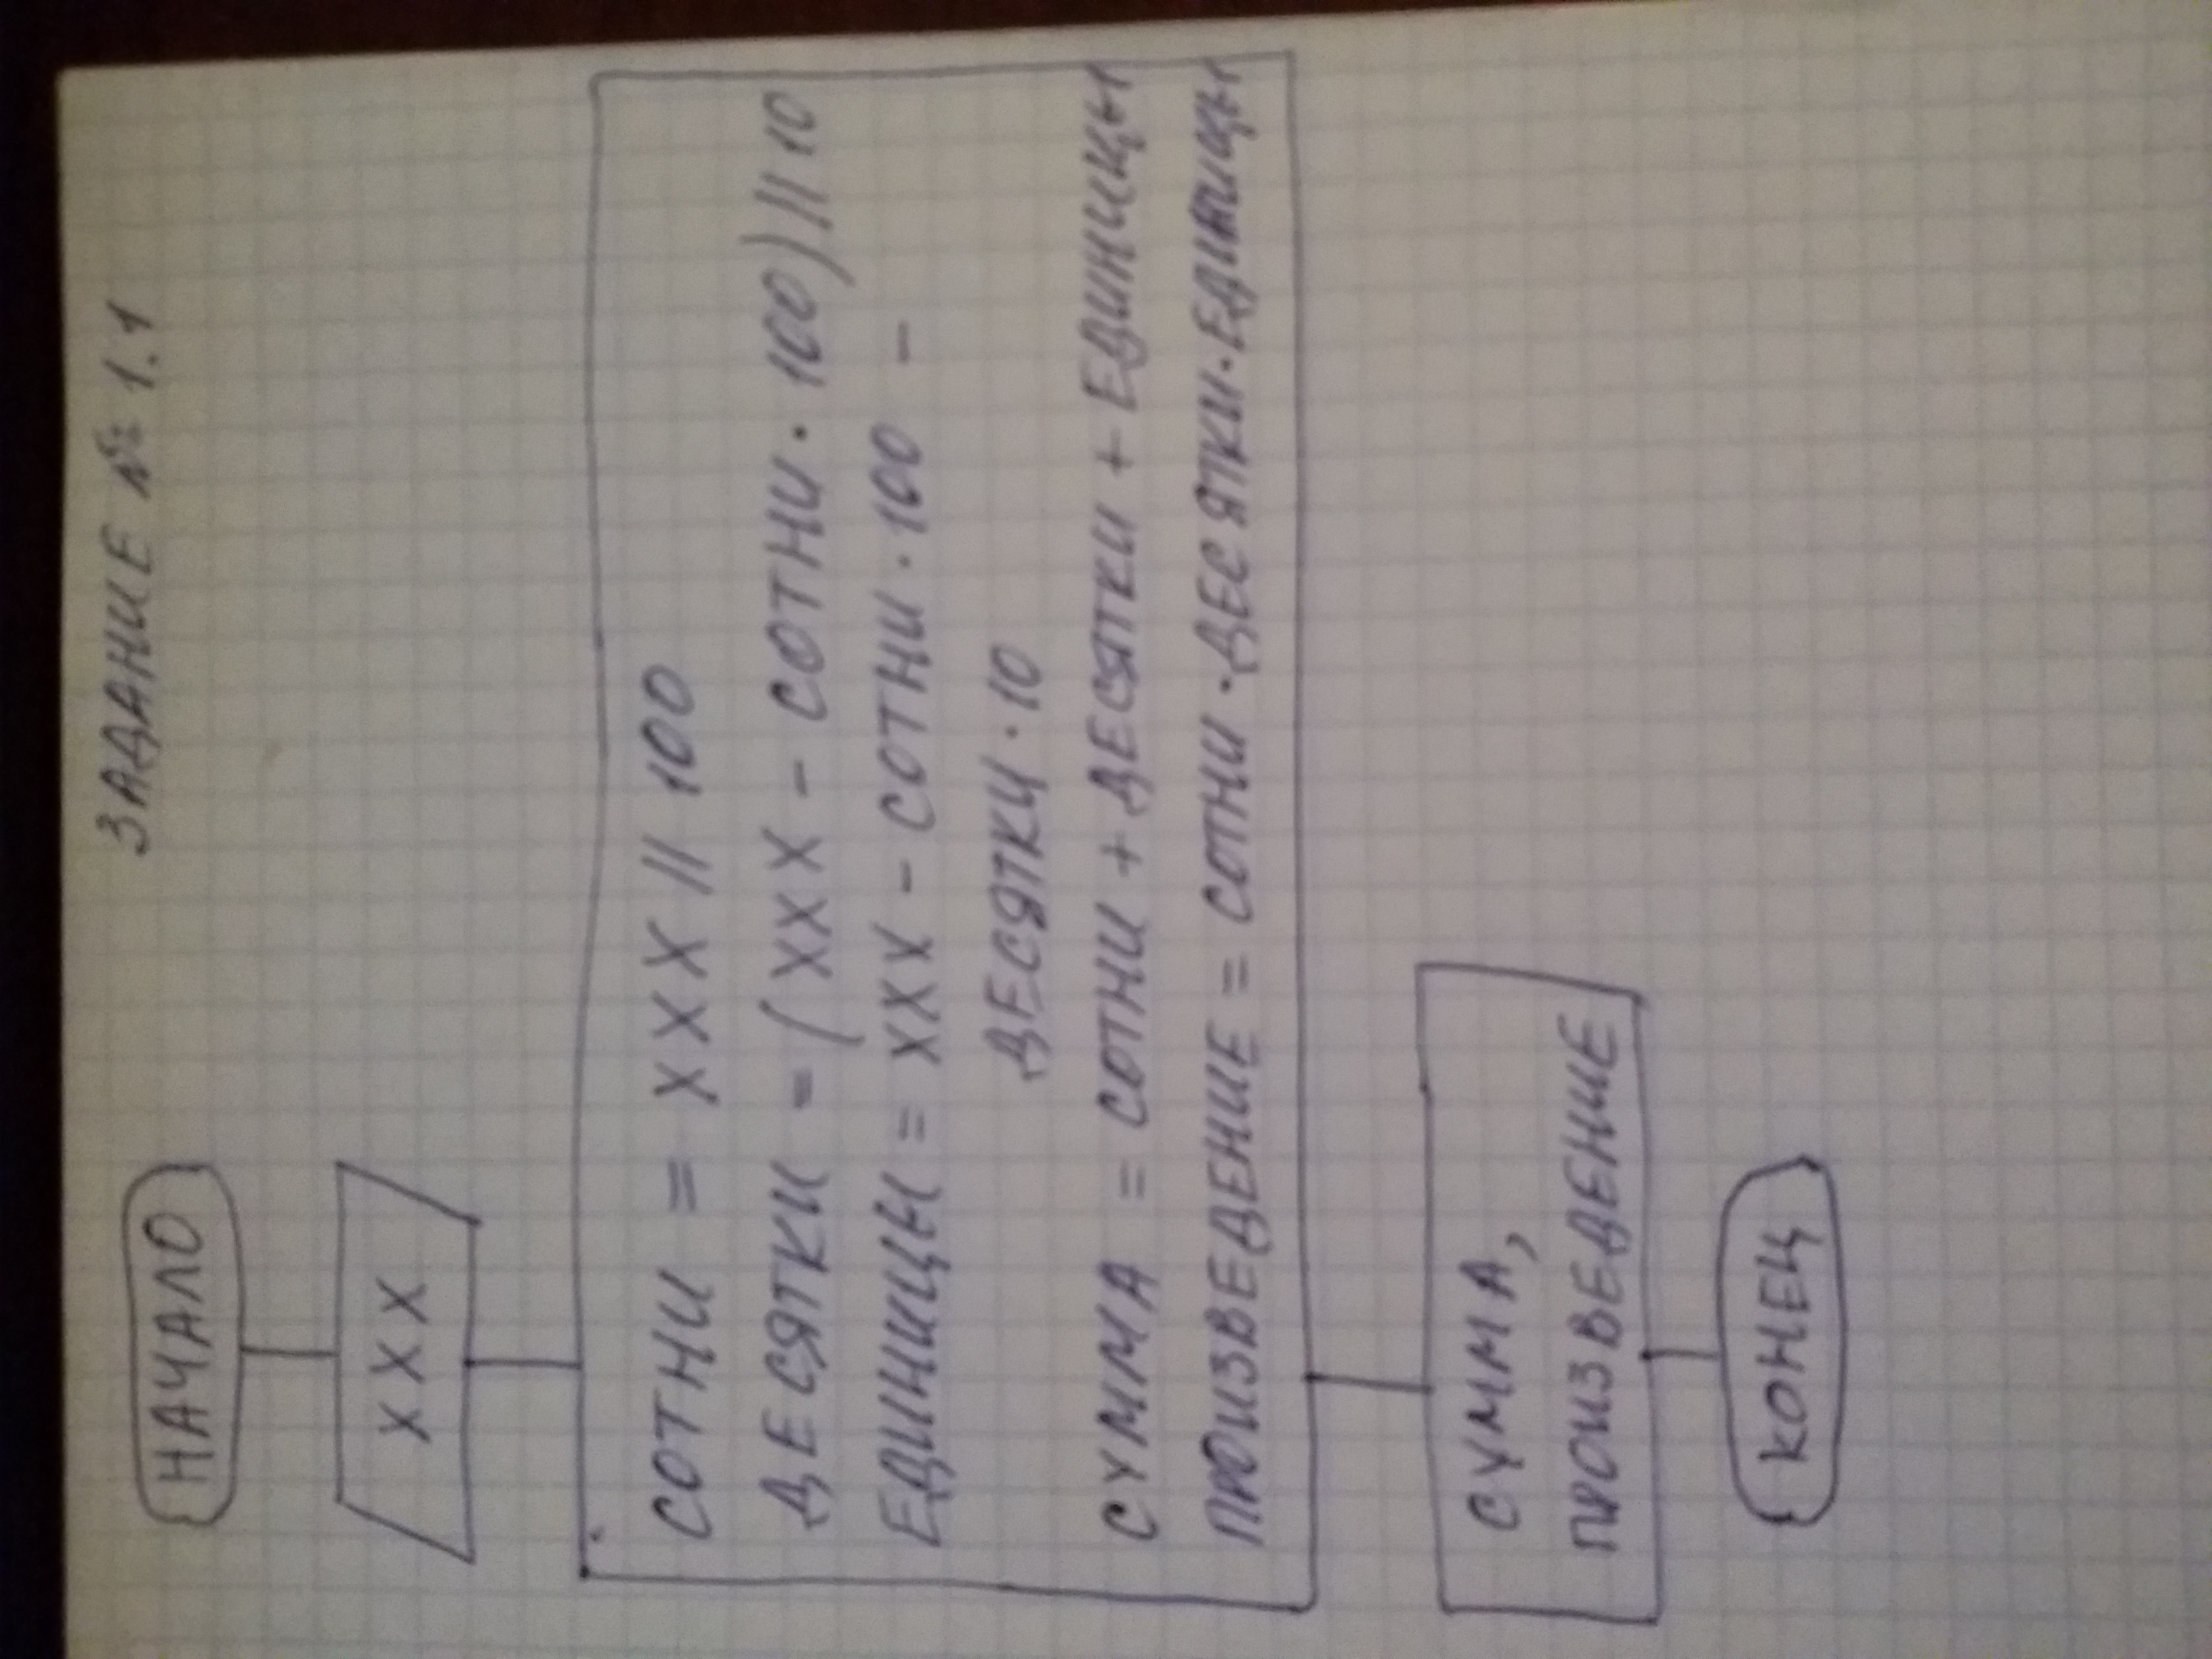 ЗАДАНИЕ № 1.1
НАЧАЛО
XXX
СОТНИ = XXX // 100
ДЕСЯТКИ = (XXX - СОТНИ · 100) // 10
ЕДИНИЦЫ = XXX - СОТНИ · 100 -
ДЕСЯТКИ · 10
СУММА = СОТНИ + ДЕСЯТКИ + ЕДИНИЦЫ
ПРОИЗВЕДЕНИЕ = СОТНИ · ДЕСЯТКИ · ЕДИНИЦЫ
СУММА,
ПРОИЗВЕДЕНИЕ
КОНЕЦ